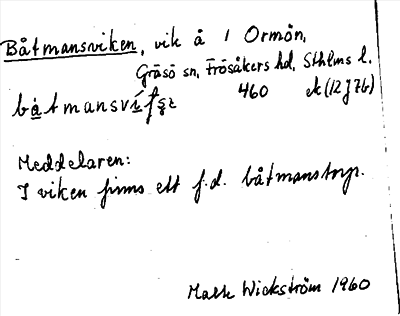 Båtmansviken, vik å 1 Ormön,
Gräsö sn, Frösåkers hd, Sthlms l.
båtmansví 460 ek (12J7b)
Meddelaren:
I viken finns ett f.d. båtmanstorp.
Wickström 1960